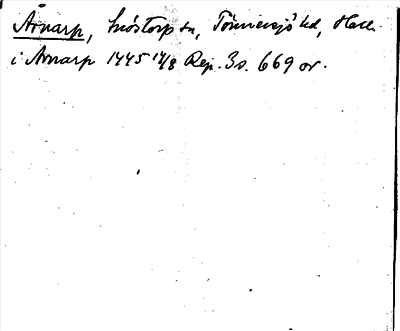 Årnarp, Snöstorp sn, Tönnersjö hd, Hall.
i Arnarp 1445 12/8 Rep. 3s. 669 or.